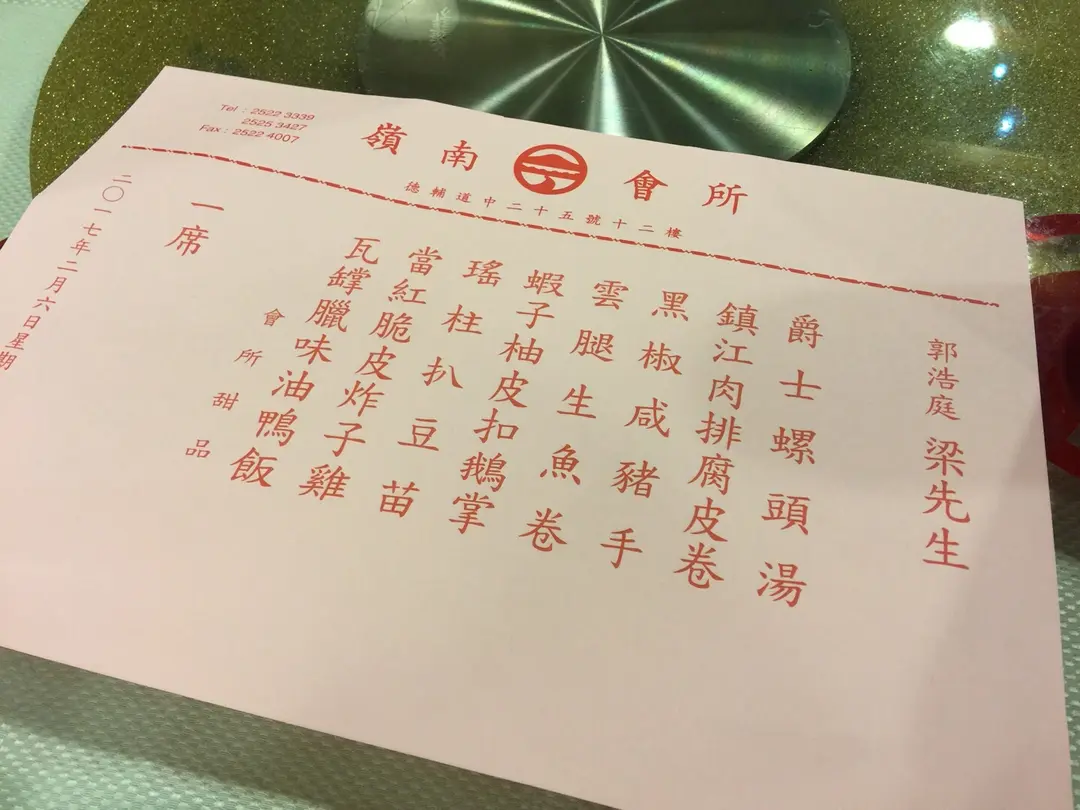 Tel : 2522 3339
2525 3427
Fax : 2522 4007
嶺南會所
德輔道中二十五號十二樓
郭浩庭 梁先生
爵士螺頭湯
鎮江肉排腐皮卷
黑椒咸豬手
雲腿生魚卷
蝦子柚皮扣鵝掌
瑤柱扒豆苗
當紅脆皮炸子雞
瓦罉臘味油鴨飯
會所甜品
一席
二〇一七年二月六日星期